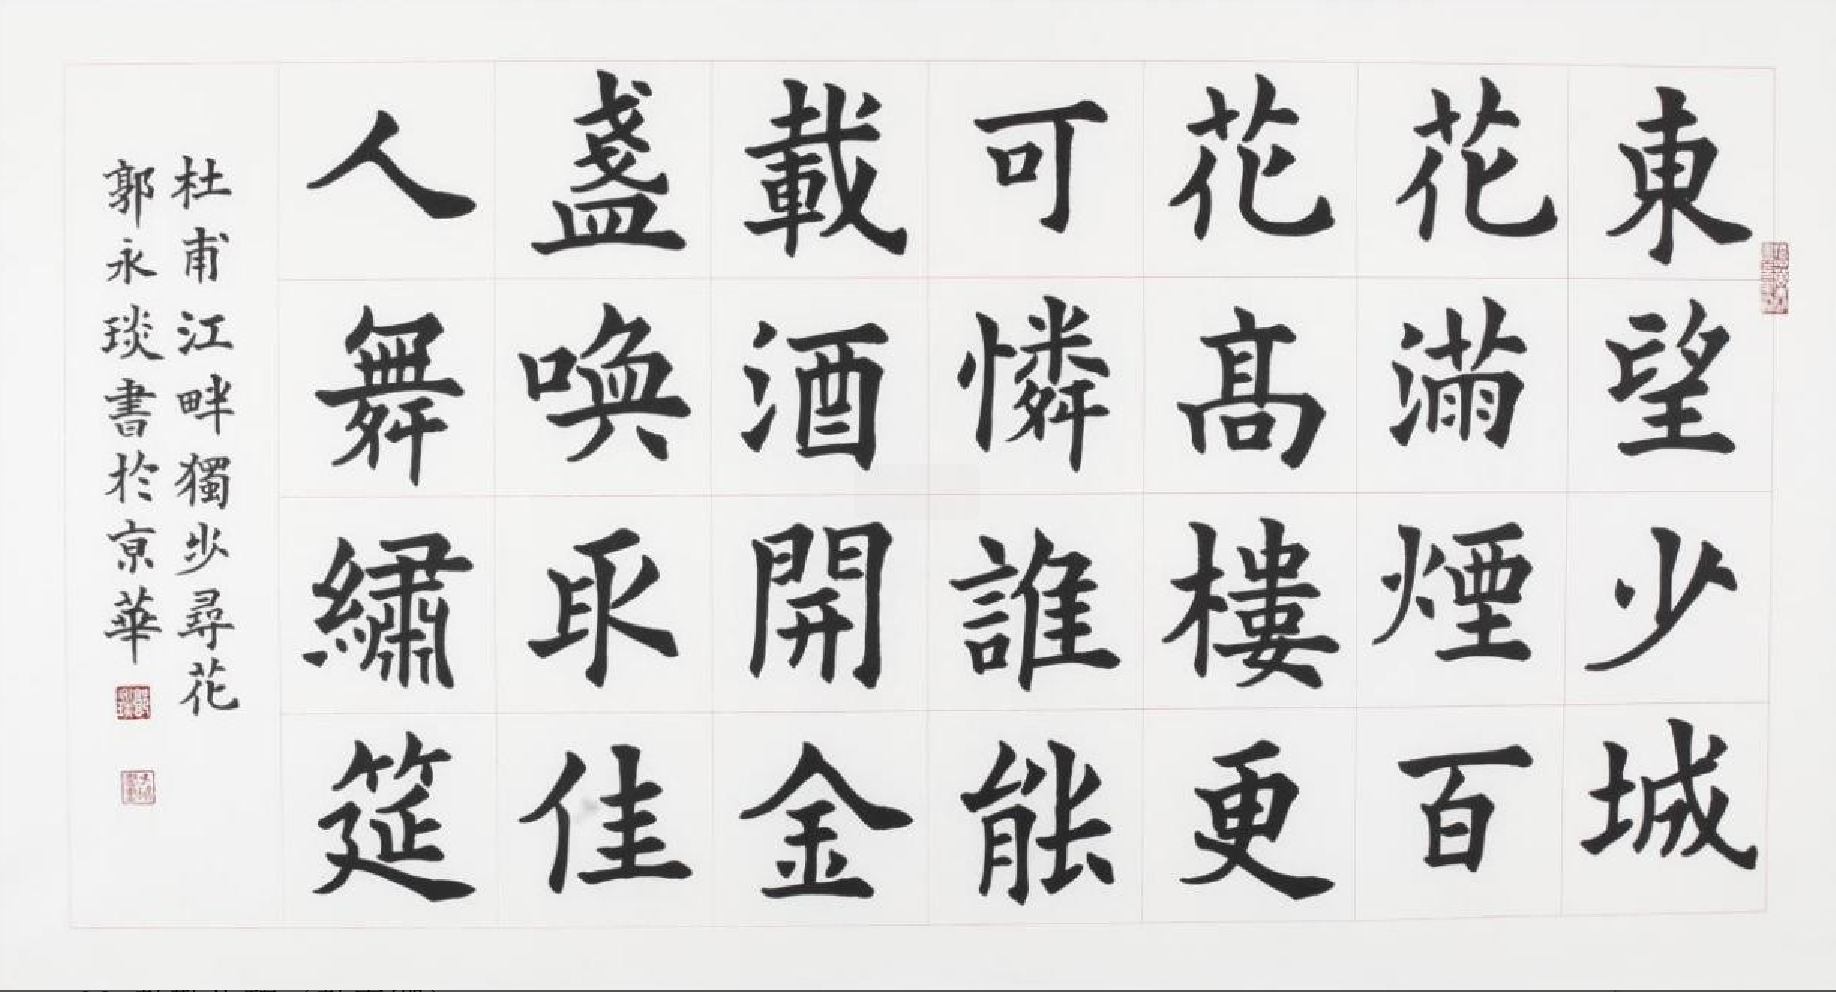 東望少城
花滿煙百
花高樓更
可憐誰能
載酒開金
盞喚取佳
人舞繡筵
杜甫江畔獨步尋花
郭永琰書於京華